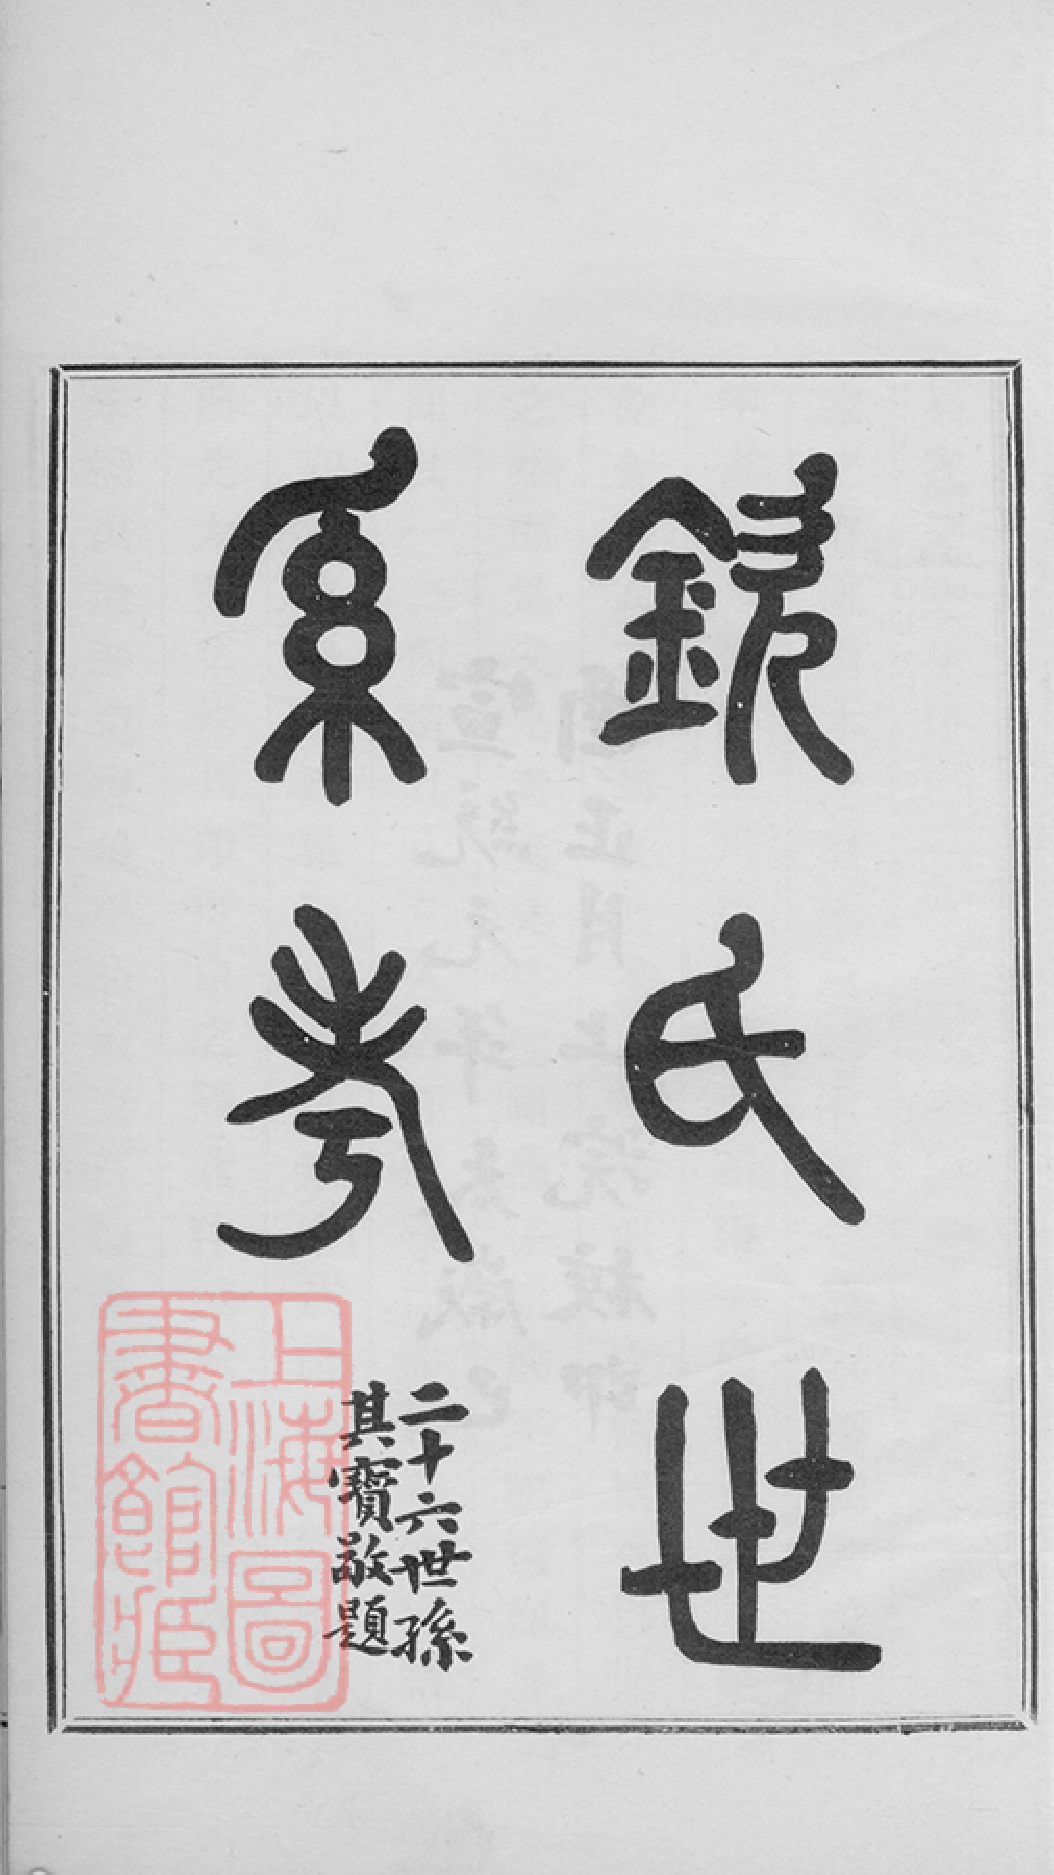 欽氏世
系考
二十六世孫
其寶敬題
上海圖
書館藏